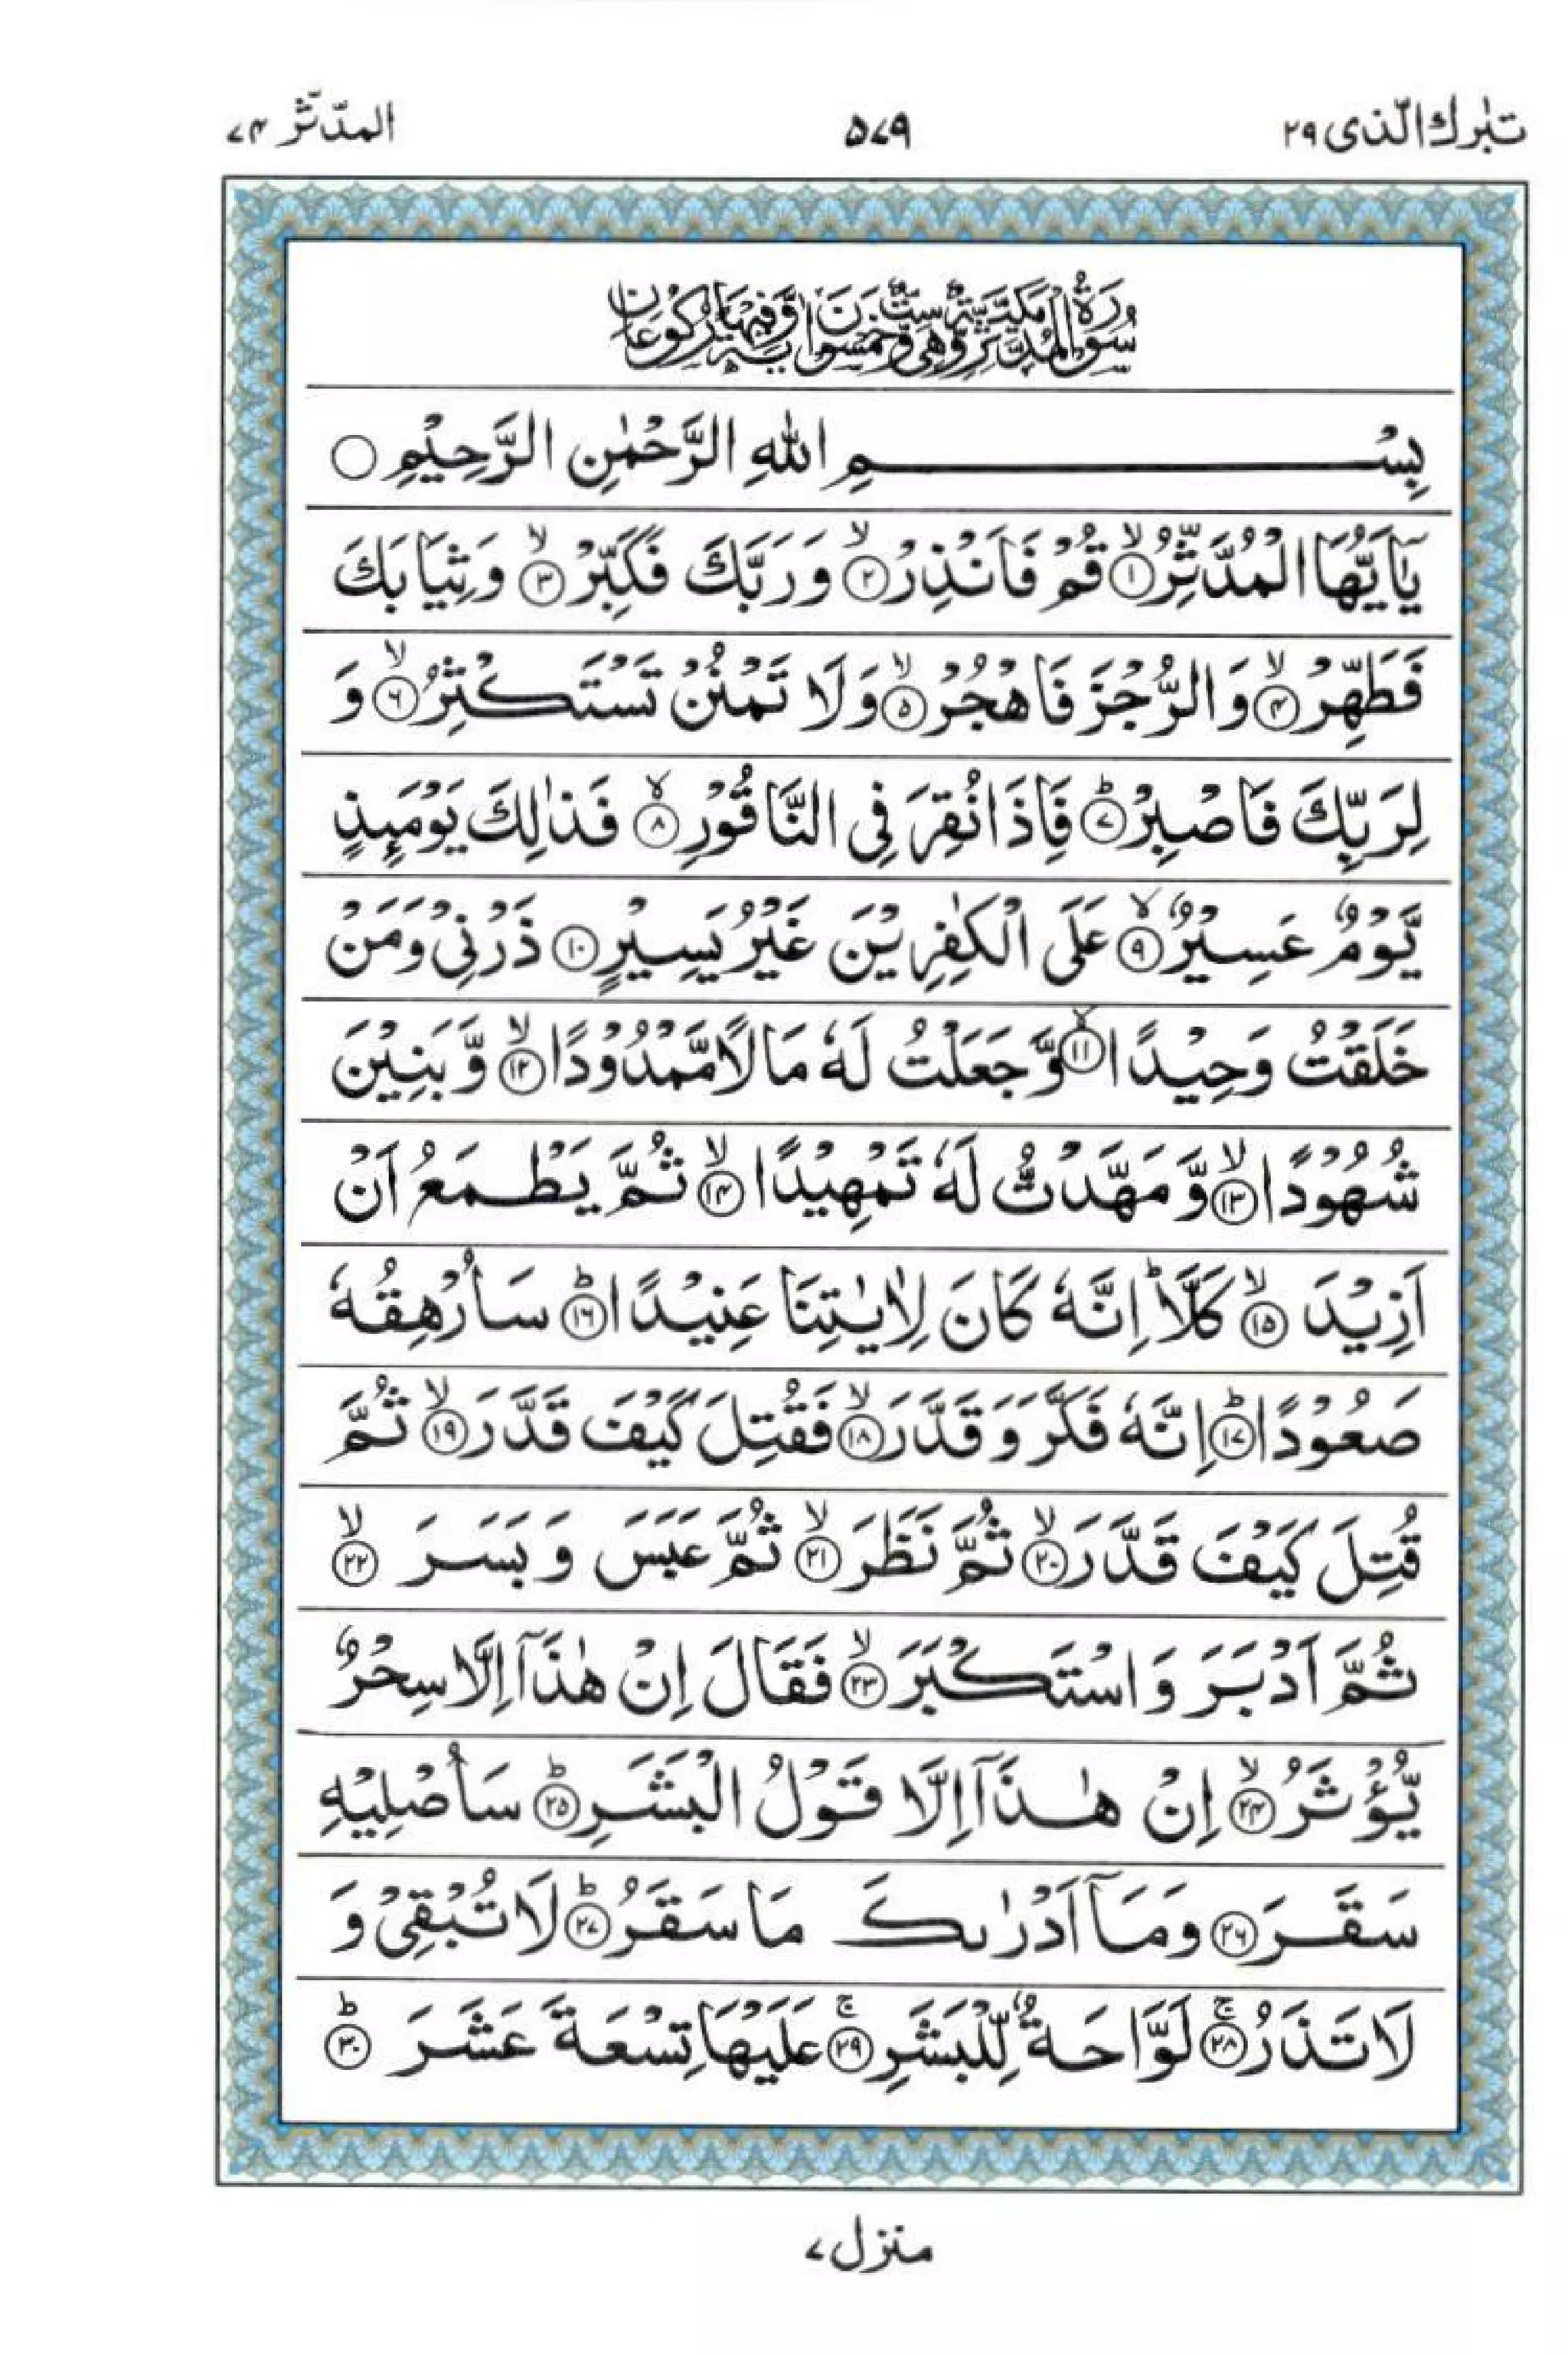 تبٰرك الّذی ٢٩
۵۷۹
المدّثّر ۷۴
سُوْرَةُ الْمُدَّثِّرِ مَكِّيَّةٌ وَّهِیَ سِتٌّ وَّخَمْسُوْنَ اٰيَةً وَّفِيْهَا رُكُوْعَانِ
بِسْمِ اللهِ الرَّحْمٰنِ الرَّحِيْمِ ○
يٰۤاَيُّهَا الْمُدَّثِّرُ ۙ﴿۱﴾ قُمْ فَاَنْذِرْ ۙ﴿۲﴾ وَرَبَّكَ فَكَبِّرْ ۙ﴿۳﴾ وَثِيَابَكَ
فَطَهِّرْ ۙ﴿۴﴾ وَالرُّجْزَ فَاهْجُرْ ۙ﴿۵﴾ وَلَا تَمْنُنْ تَسْتَكْثِرُ ۙ﴿۶﴾ وَ
لِرَبِّكَ فَاصْبِرْ ؕ﴿۷﴾ فَاِذَا نُقِرَ فِی النَّاقُوْرِ ۙ﴿۸﴾ فَذٰلِكَ يَوْمَىِٕذٍ
يَّوْمٌ عَسِيْرٌ ۙ﴿۹﴾ عَلَى الْكٰفِرِيْنَ غَيْرُ يَسِيْرٍ ﴿۱۰﴾ ذَرْنِیْ وَمَنْ
خَلَقْتُ وَحِيْدًا ۙ﴿۱۱﴾ وَّجَعَلْتُ لَهٗ مَالًا مَّمْدُوْدًا ۙ﴿۱۲﴾ وَّبَنِيْنَ
شُهُوْدًا ۙ﴿۱۳﴾ وَّمَهَّدْتُّ لَهٗ تَمْهِيْدًا ۙ﴿۱۴﴾ ثُمَّ يَطْمَعُ اَنْ
اَزِيْدَ ۙ﴿۱۵﴾ كَلَّا ؕ اِنَّهٗ كَانَ لِاٰيٰتِنَا عَنِيْدًا ؕ﴿۱۶﴾ سَاُرْهِقُهٗ
صَعُوْدًا ؕ﴿۱۷﴾ اِنَّهٗ فَكَّرَ وَقَدَّرَ ۙ﴿۱۸﴾ فَقُتِلَ كَيْفَ قَدَّرَ ۙ﴿۱۹﴾ ثُمَّ
قُتِلَ كَيْفَ قَدَّرَ ۙ﴿۲۰﴾ ثُمَّ نَظَرَ ۙ﴿۲۱﴾ ثُمَّ عَبَسَ وَبَسَرَ ۙ﴿۲۲﴾
ثُمَّ اَدْبَرَ وَاسْتَكْبَرَ ۙ﴿۲۳﴾ فَقَالَ اِنْ هٰذَاۤ اِلَّا سِحْرٌ
يُّؤْثَرُ ۙ﴿۲۴﴾ اِنْ هٰذَاۤ اِلَّا قَوْلُ الْبَشَرِ ؕ﴿۲۵﴾ سَاُصْلِيْهِ
سَقَرَ ﴿۲۶﴾ وَمَاۤ اَدْرٰىكَ مَا سَقَرُ ؕ﴿۲۷﴾ لَا تُبْقِیْ وَ
لَا تَذَرُ ۚ﴿۲۸﴾ لَوَّاحَةٌ لِّلْبَشَرِ ۚ﴿۲۹﴾ عَلَيْهَا تِسْعَةَ عَشَرَ ؕ﴿۳۰﴾
منزل ۷